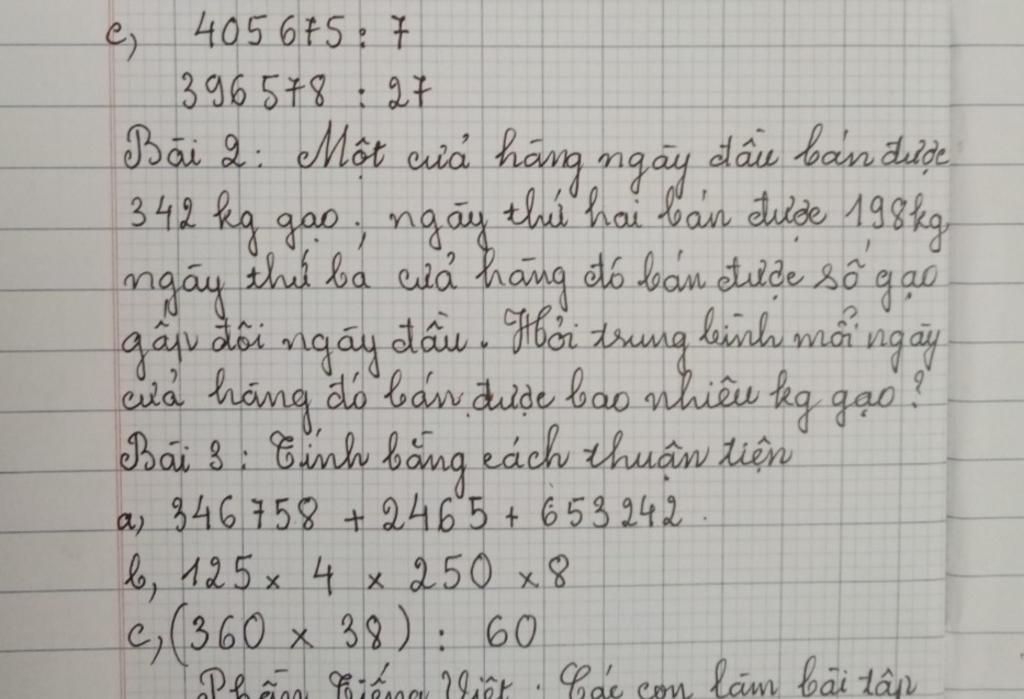 c, 405675 : 7
396578 : 27
Bài 2: Một cửa hàng ngày đầu bán được
342 kg gạo, ngày thứ hai bán được 198kg,
ngày thứ ba cửa hàng đó bán được số gạo
gấp đôi ngày đầu. Hỏi trung bình mỗi ngày
cửa hàng đó bán được bao nhiêu kg gạo?
Bài 3: Tính bằng cách thuận tiện
a, 346758 + 2465 + 653242.
b, 125 x 4 x 250 x 8
c, (360 x 38) : 60
Phần Tiếng Việt. Các con làm bài tập